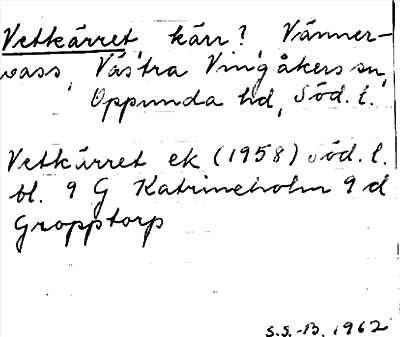 Vetkärret, kärr?, Vänner-
vass, Västra Vingåkers sn,
Oppunda hd, Söd. l.
Vetkärret ek (1958) Söd. l.
bl. 9 G Katrineholm 9 d
Gropptorp
S.S.-B. 1962